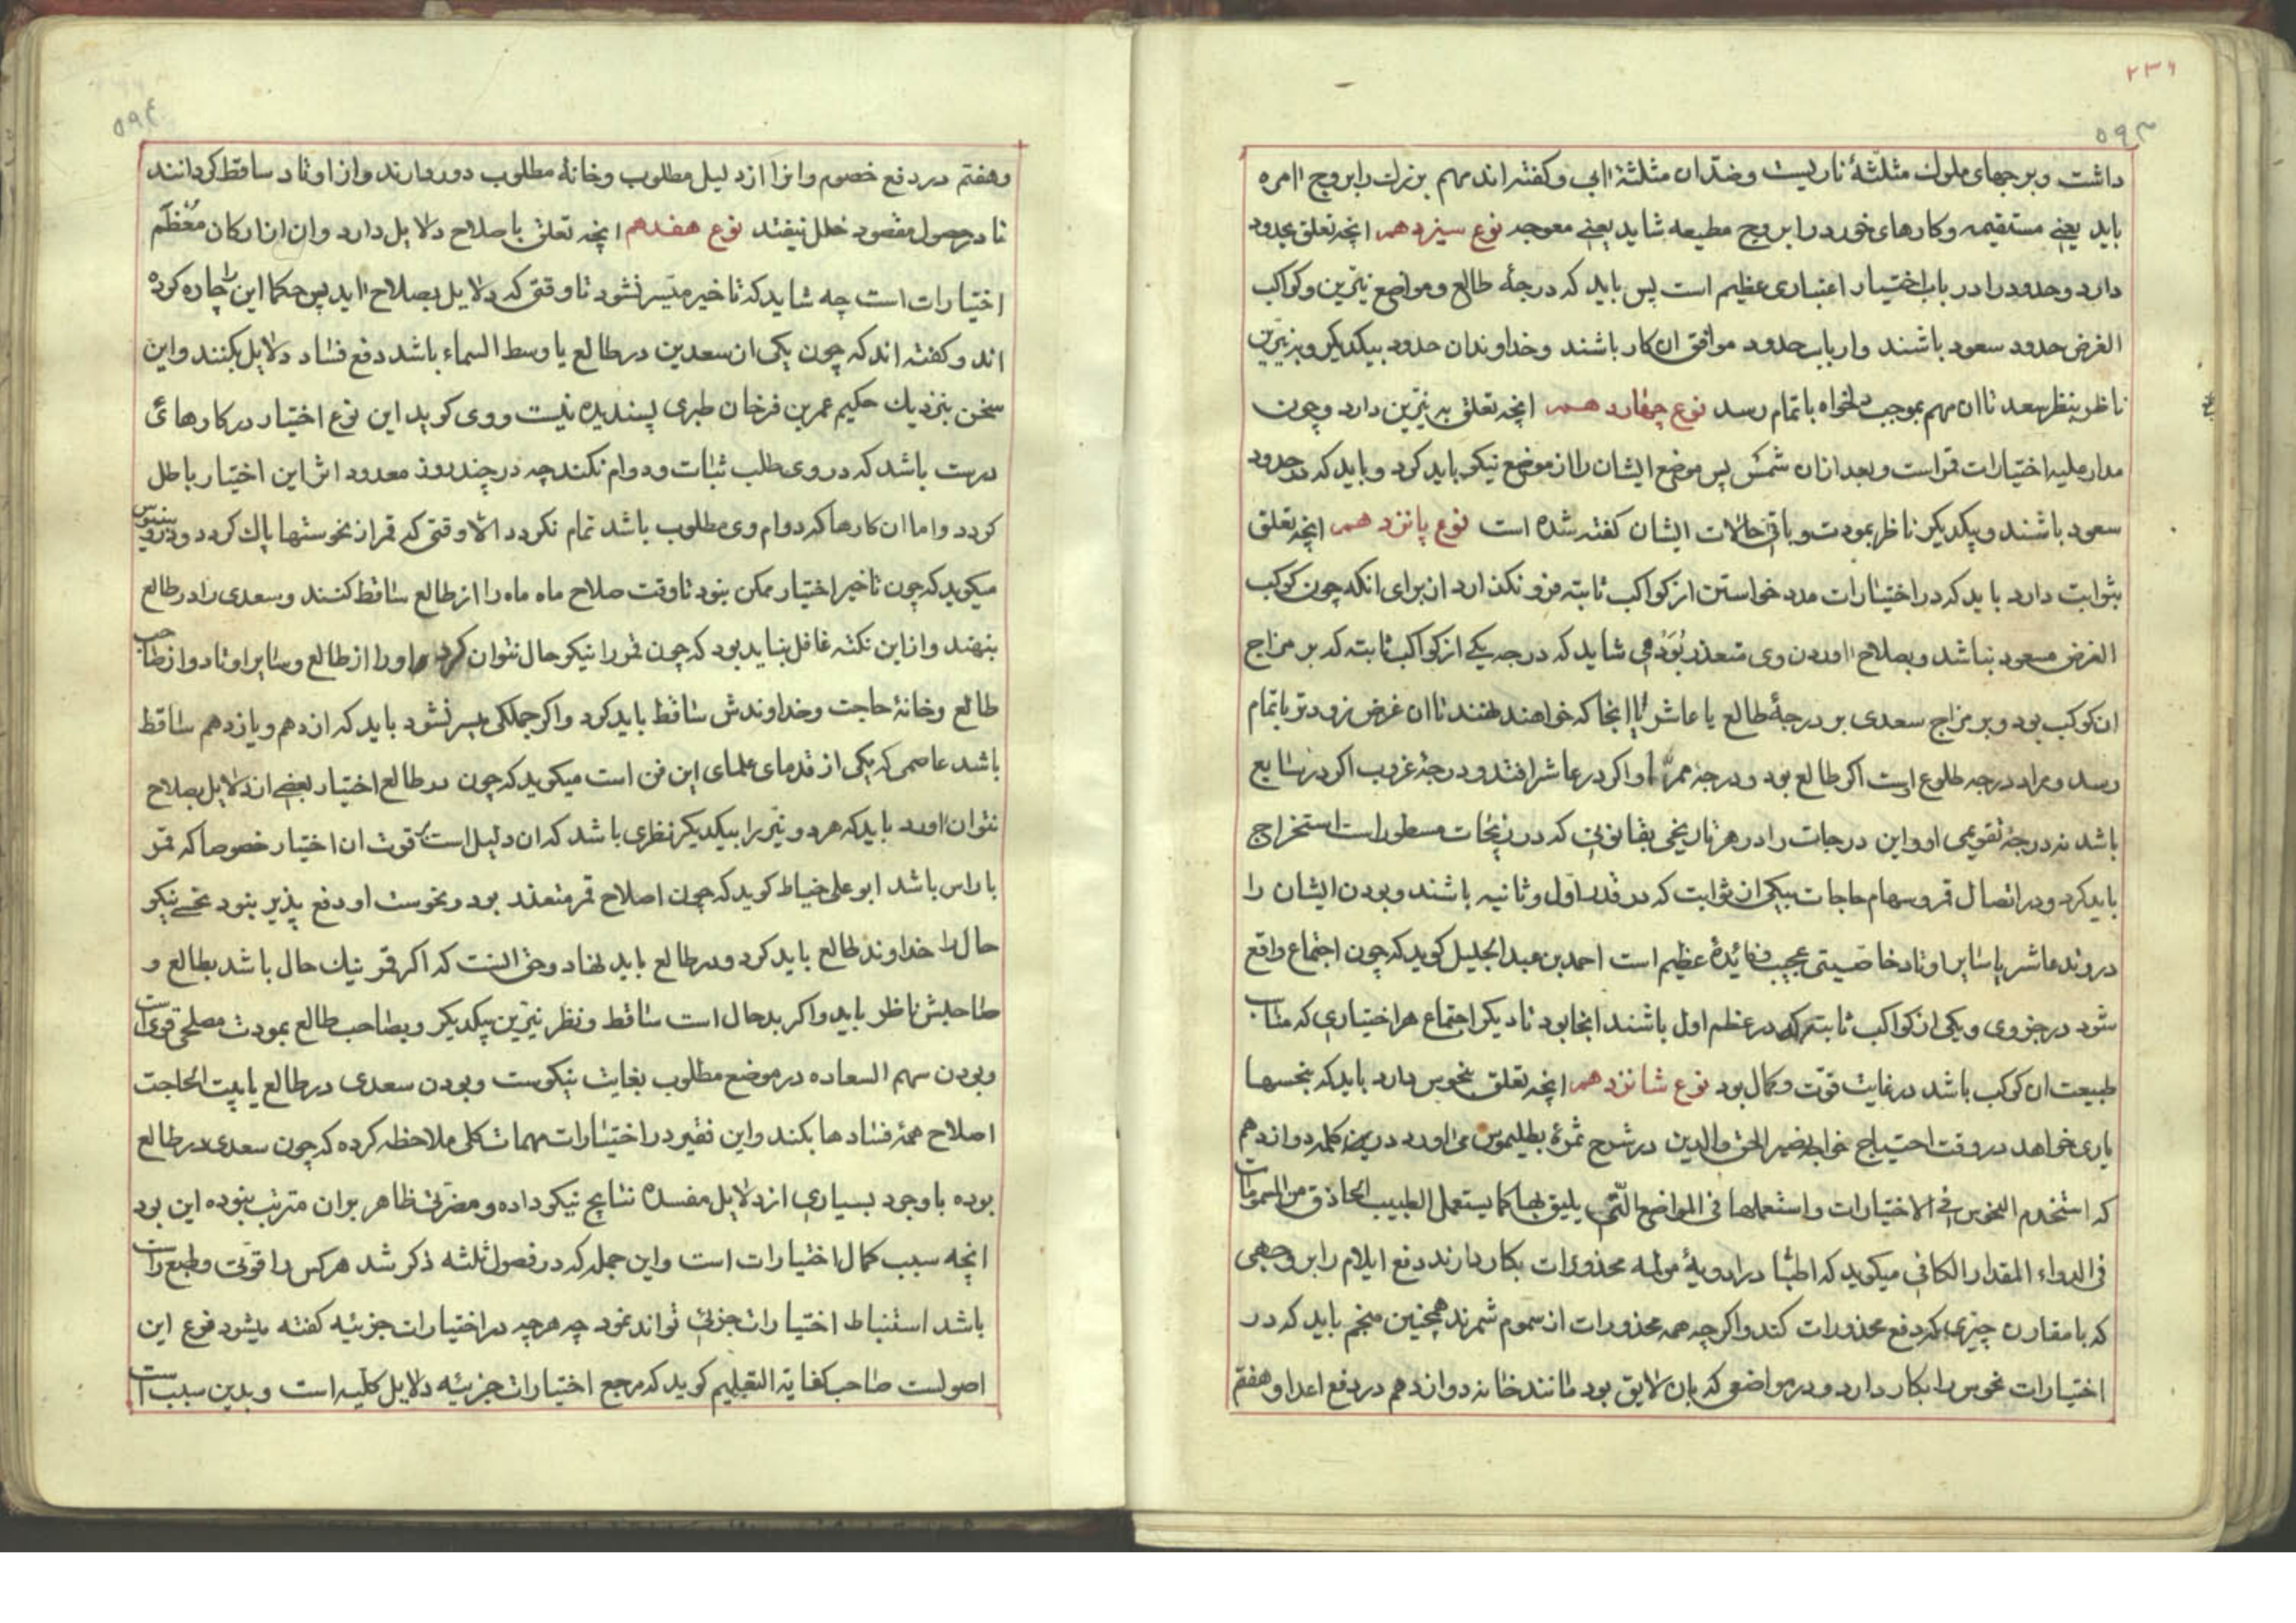 ۲۳۶
۵۹۳
داشت و برجهای ملوك مثلثهٔ ناریست و ضدّ ان مثلثهٔ ابی و کفته اند مهم بزرك را بروج امره
باید یعنی مستقیمه و کارهای خورد را بروج مطیعه شاید یعنی معوجه نوع سیزدهم انچه تعلق بحدود
دارد و حدود را در باب اختیار اعتباری عظیم است پس باید که درجهٔ طالع و مواضع نیّرین و کوکب
الغرض حدود سعود باشند و ارباب حدود موافق ان کار باشند و خداوندان حدود بیکدیکر و بنیّرین
ناظر بنظر سعد تا ان مهم بموجب دلخواه باتمام رسد نوع چهاردهم انچه تعلق به نیّرین دارد و چون
مدار علیه اختیارات قمر است و بعد ازان شمس پس موضع ایشان را از موضع نیکو باید کرد و باید که در حدود
سعود باشند و بیکدیکر ناظر بمودت و باقی حالات ایشان کفته شده است نوع پانزدهم انچه تعلق
بثوابت دارد باید که در اختیارات مدد خواستن از کواکب ثابته فرو نکذارد از برای انکه چون کوکب
الغرض مسعود نباشد و بصلاح اوردن وی متعذر بود می شاید که درجه یکی از کواکب ثابته که بر مزاج
ان کوکب بود و بر مزاج سعدی بر درجهٔ طالع یا عاشر یا انجا که خواهند نهند تا ان غرض زودتر باتمام
رسد و مراد درجه طلوع است اکر طالع بود و درجهٔ ممرّ او اکر در عاشر افتد و درجهٔ غروب اکر در سابع
باشد نه درجهٔ تقویمی او و این درجات را در هر تاریخی بقانونی که در زیجات مسطور است استخراج
باید کرد و در اتصال قمر و سهام حاجات بیکی از ثوابت که در قدر اول و ثانیه باشند و بودن ایشان را
در وتد عاشر یا سایر اوتاد خاصیتی عجیب و فائیدهٔ عظیم است احمد بن عبد الجلیل کوید که چون اجتماع واقع
شود در جزوی و یکی از کواکب ثابته که در عظم اول باشند انجا بود تا دیکر اجتماع هر اختیاری که مناسب
طبیعت ان کوکب باشد در غایت قوّت و کمال بود نوع شانزدهم انچه تعلق بنحوس دارد باید که بنحسها
یاری خواهد در وقت احتیاج خواجه نصیر الحق والدین در شرح ثمرهٔ بطلیموس می اورد در کلمه دوازدهم
که استخدم النحوس فی الاختیارات و استعملها فی المواضع التّی یلیق بها کما یستعمل الطبیب الحاذق من السمومات
فی الدواء المقدار الکافی میکوید که اطبّا در ادویهٔ مولمه محذورات بکار دارند دفع ایلام را بر وجهی
که با مقارن چیزی که دفع محذورات کند و اکر چه همه محذورات از سموم شمرند همچنین منجم باید که در
اختیارات نحوس را بکار دارد و در مواضعی که بان لایق بود مانند خانه دوازدهم در دفع اعدا و هفتم
۵۹٤
و هفتم در دفع خصوم و انرا از دلیل مطلوب و خانهٔ مطلوب دور دارند و از اوتاد ساقط کردانند
تا در حصول مقصود خلل نیفتد نوع هفدهم انچه تعلق باصلاح دلایل دارد و ان از ارکان معظّم
اختیارات است چه شاید که تاخیر میّسر نشود تا وقتی که دلایل بصلاح اید پس حکما این را چاره کرده
اند و کفته اند که چون یکی از سعدین در طالع یا وسط السماء باشد دفع فساد دلایل بکنند و این
سخن بنزدیك حکیم عمر بن فرخان طبری پسندیده نیست و وی کوید این نوع اختیار در کارهائ
درست باشد که در وی طلب ثبات و دوام نکند چه در چند روز معدود اثر این اختیار باطل
کردد و اما ان کارها که دوام وی مطلوب باشد تمام نکردد الّا وقتی که قمر از نحوستها پاك کردد
میکوید که چون تاخیر اختیار ممکن نبود تا وقت صلاح ماه ماه را از طالع ساقط کنند و سعدی را در طالع
بنهند و از این نکته غافل نباید بود که چون قمر را نیکو حال نتوان کرد او را از طالع و سایر اوتاد و از صاحب
طالع و خانهٔ حاجت و خداوندش ساقط باید کرد و اکر جملکی میسر نشود باید که از دهم و یازدهم ساقط
باشد عاصمی که یکی از قدمای علمای این فن است میکوید که چون در طالع اختیار بعضی از دلایل بصلاح
نتوان اورد باید که هر دو نیّر را بیکدیکر نظری باشد که ان دلیل است بر قوت ان اختیار خصوصا که قمر
با راس باشد ابو علی خیاط کوید که چون اصلاح قمر متعذر بود و نحوست او دفع پذیر نبود نحسی نیکو
حال را خداوند طالع باید کرد و در طالع باید نهاد و حق انست که اکر قمر نیك حال باشد بطالع و
صاحبش ناظر باید و اکر بدحال است ساقط و نظر نیّرین بیکدیکر و بصاحب طالع بمودت مصلحی قوی است
و بودن سهم السعاده در موضع مطلوب بغایت نیکوست و بودن سعدی در طالع یا بیت الحاجت
اصلاح همهٔ فسادها بکند و این فقیر در اختیارات مهمات کلی ملاحظه کرده که چون سعدی در طالع
بوده با وجود بسیاری از دلایل مفسده نتایج نیکو داده و مضرتی ظاهر بران مترتب نبوده این بود
انچه سبب کمال اختیارات است و این جمله که در فصول ثلثه ذکر شد هر کس را قوّتی و طبع راست
باشد استنباط اختیارات جزئی تواند نمود چه هر چه در اختیارات جزئیه کفته میشود فرع این
اصولست صاحب کفایة التعلیم کوید که مرجع اختیارات جزئیه دلایل کلّیه است و بدین سبب است